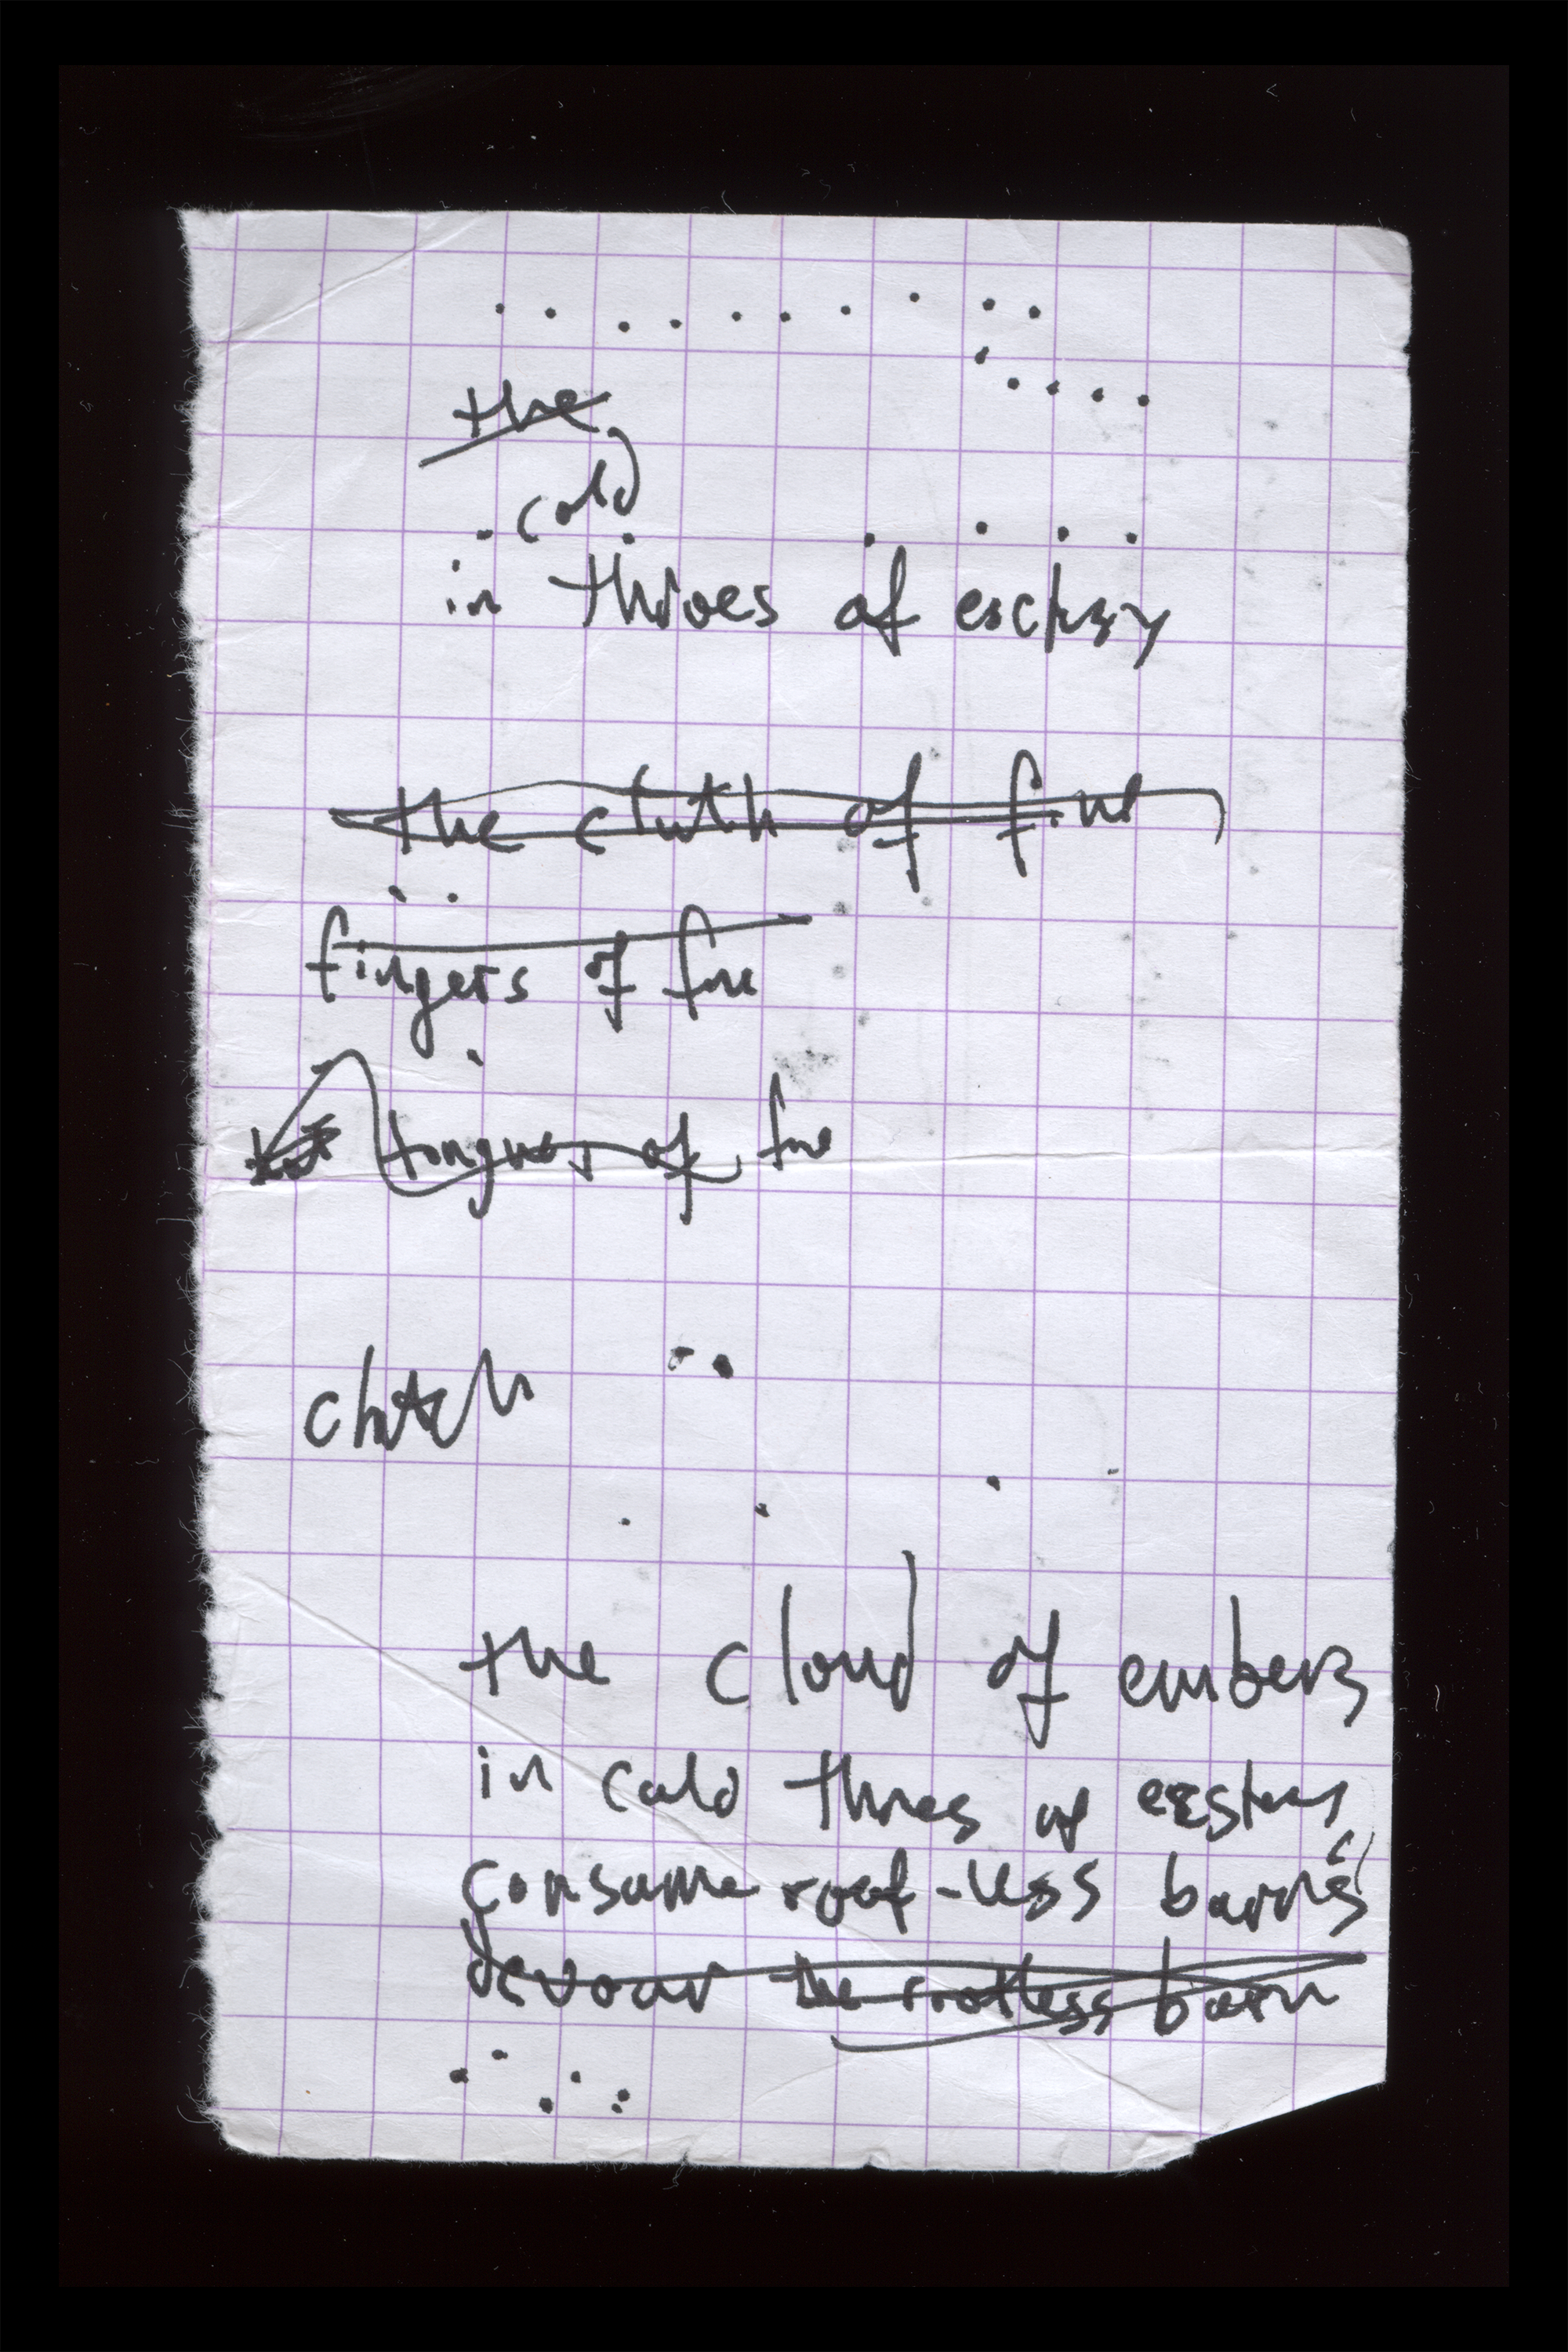 the
cold
in throes of
the of fire
fingers of fire
tongues of fire
clutch
the cloud of embers
in cold throes of
consume roof-less barns
devour the rootless barn